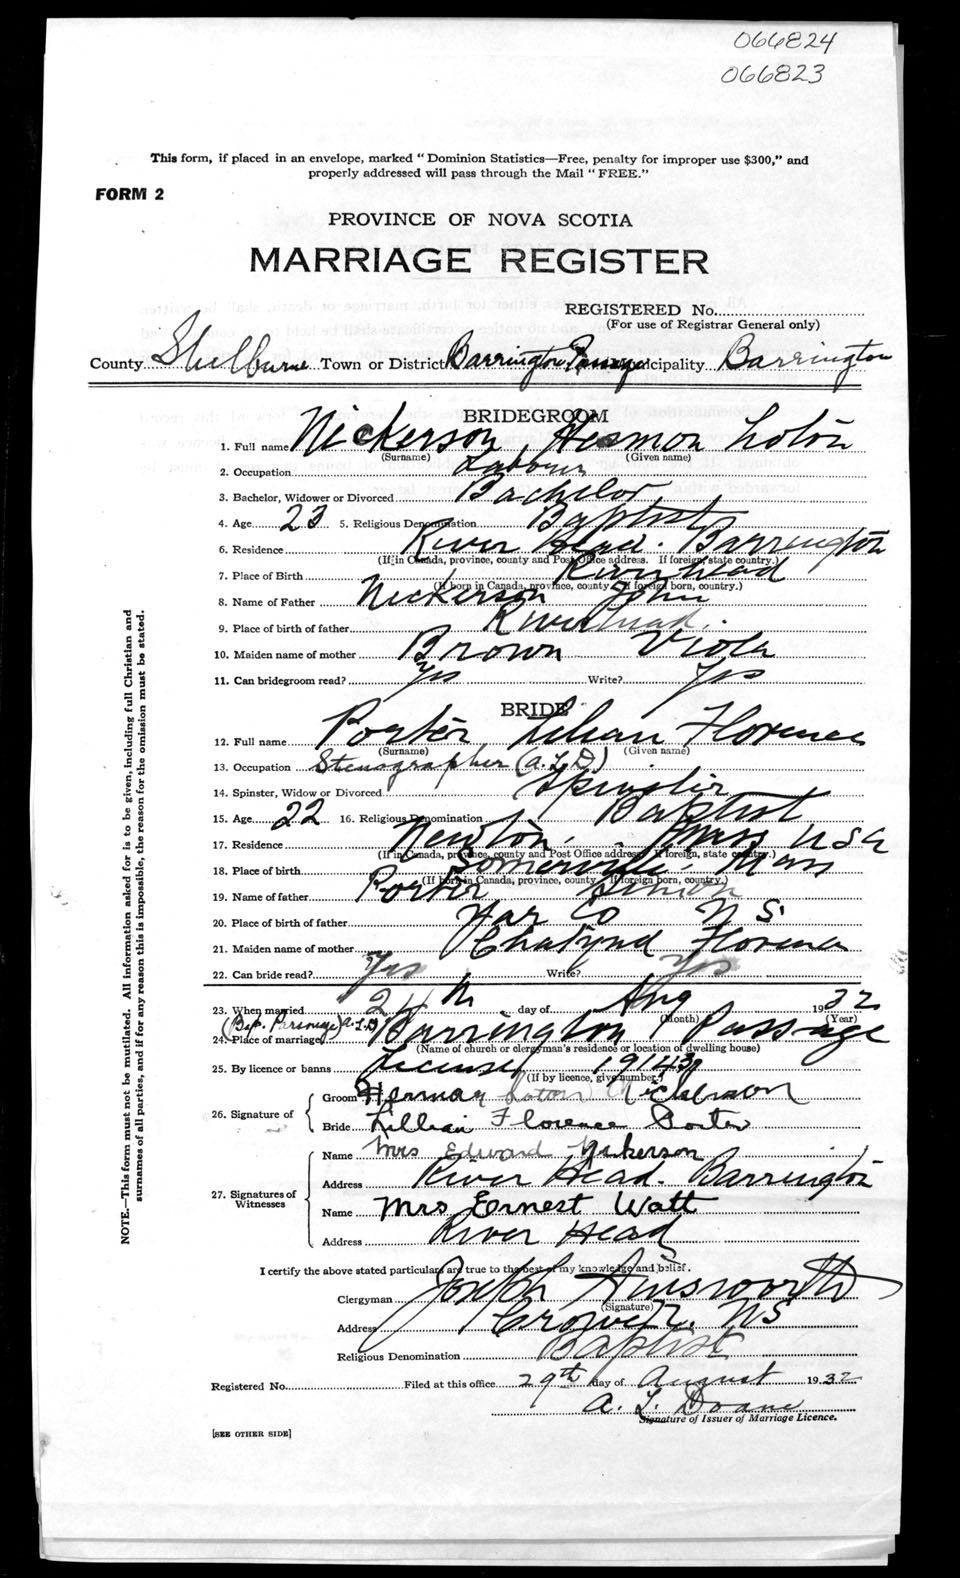 066824
066823
This form, if placed in an envelope, marked "Dominion Statistics—Free, penalty for improper use $300," and
properly addressed will pass through the Mail "FREE."
FORM 2
PROVINCE OF NOVA SCOTIA
MARRIAGE REGISTER
REGISTERED No.
(For use of Registrar General only)
County Shelburne Town or District Barrington Passage Municipality Barrington
BRIDEGROOM
1. Full name Nickerson, Hermon Loton
(Surname) (Given name)
2. Occupation Labour
3. Bachelor, Widower or Divorced Bachelor
4. Age 23 5. Religious Denomination Baptist
6. Residence River Head. Barrington
(If in Canada, province, county and Post Office address. If foreign, state country.)
7. Place of Birth River head
(If born in Canada, province, county. If foreign born, country.)
8. Name of Father Nickerson John
9. Place of birth of father River head.
10. Maiden name of mother Brown Viola
11. Can bridegroom read? Yes Write? Yes
BRIDE
12. Full name Porter Lilian Florence
(Surname) (Given name)
13. Occupation Stenographer (A.L.D.)
14. Spinster, Widow or Divorced Spinster
15. Age 22 16. Religious Denomination Baptist
17. Residence Newton Mass USA
(If in Canada, province, county and Post Office address. If foreign, state country.)
18. Place of birth Somerville Mass
(If born in Canada, province, county. If foreign born, country.)
19. Name of father Porter
20. Place of birth of father Yar Co N S.
21. Maiden name of mother Florence
22. Can bride read? Yes Write? Yes
23. When married 24th day of Aug 1932
(Month) (Year)
(Bap. Parsonage) A.L.D.
24. Place of marriage Barrington Passage
(Name of church or clergyman's residence or location of dwelling house)
25. By licence or banns License 19143
(If by licence, give number.)
26. Signature of
Groom Herman Loton Nickerson
Bride Lillian Florence Porter
27. Signatures of Witnesses
Name Mrs Edward Nickerson
Address River Head. Barrington
Name Mrs Ernest Watt
Address River Head
I certify the above stated particulars are true to the best of my knowledge and belief.
Clergyman Joseph Ainsworth
(Signature)
Address N S
Religious Denomination Baptist
Registered No. Filed at this office 29th day of August 1932
A. L. Doane
Signature of Issuer of Marriage Licence.
[SEE OTHER SIDE]
NOTE.—This form must not be mutilated. All Information asked for is to be given, including full Christian and
surnames of all parties, and if for any reason this is impossible, the reason for the omission must be stated.